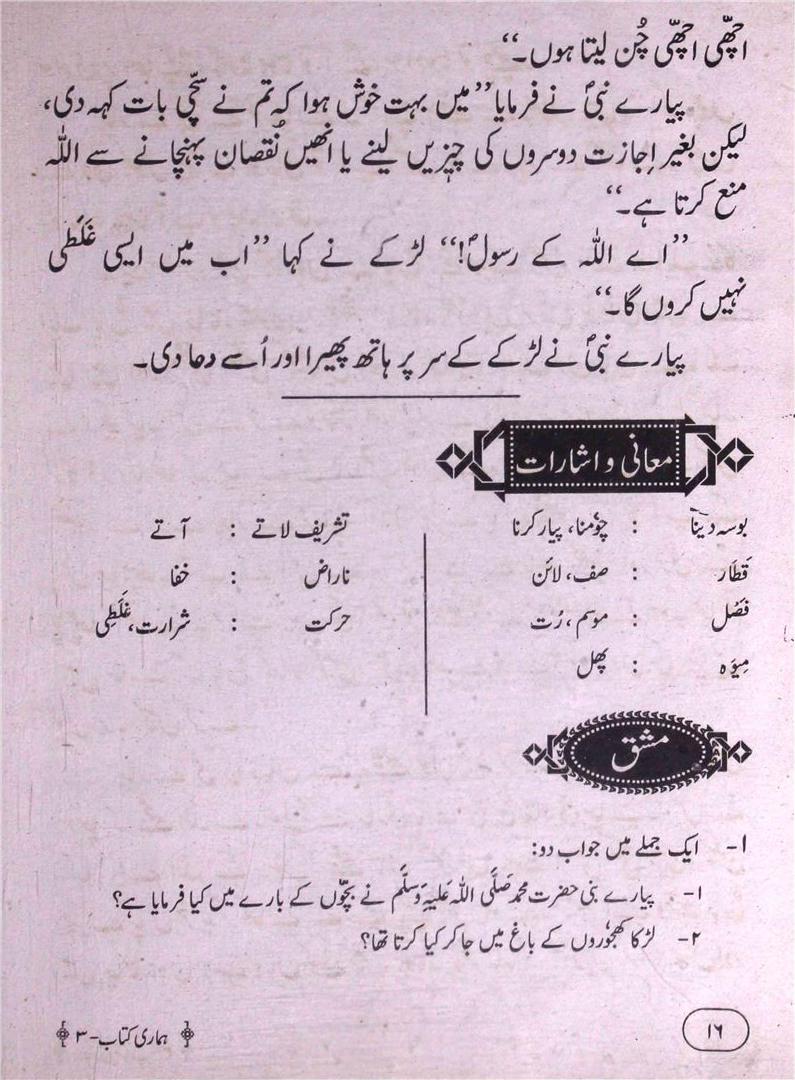 اچھّی اچھّی چُن لیتا ہوں۔‘‘
پیارے نبیؐ نے فرمایا ’’میں بہت خوش ہوا کہ تم نے سچّی بات کہہ دی،
لیکن بغیر اِجازت دوسروں کی چیزیں لینے یا انھیں نُقصان پہنچانے سے اللہ
منع کرتا ہے۔‘‘
’’اے اللہ کے رسولؐ!‘‘ لڑکے نے کہا ’’اب میں ایسی غَلَطی
نہیں کروں گا۔‘‘
پیارے نبیؐ نے لڑکے کے سر پر ہاتھ پھیرا اور اُسے دعا دی۔
معانی و اشارات
بوسہ دینا : چوٗمنا، پیار کرنا
قَطَار : صف، لائن
فَصْل : موسم، رُت
مِیوَہ : پھل
تشریف لاتے : آتے
ناراض : خفا
حرکت : شرارت، غَلَطِی
مشق
۱- ایک جملے میں جواب دو:
۱- پیارے بنی حضرت محمد صَلَّی اللہ عَلَیْہِ وَسَلَّم نے بچّوں کے بارے میں کیا فرمایا ہے؟
۲- لڑکا کھجوٗروں کے باغ میں جا کر کیا کرتا تھا؟
۱۶
ہماری کتاب-۳